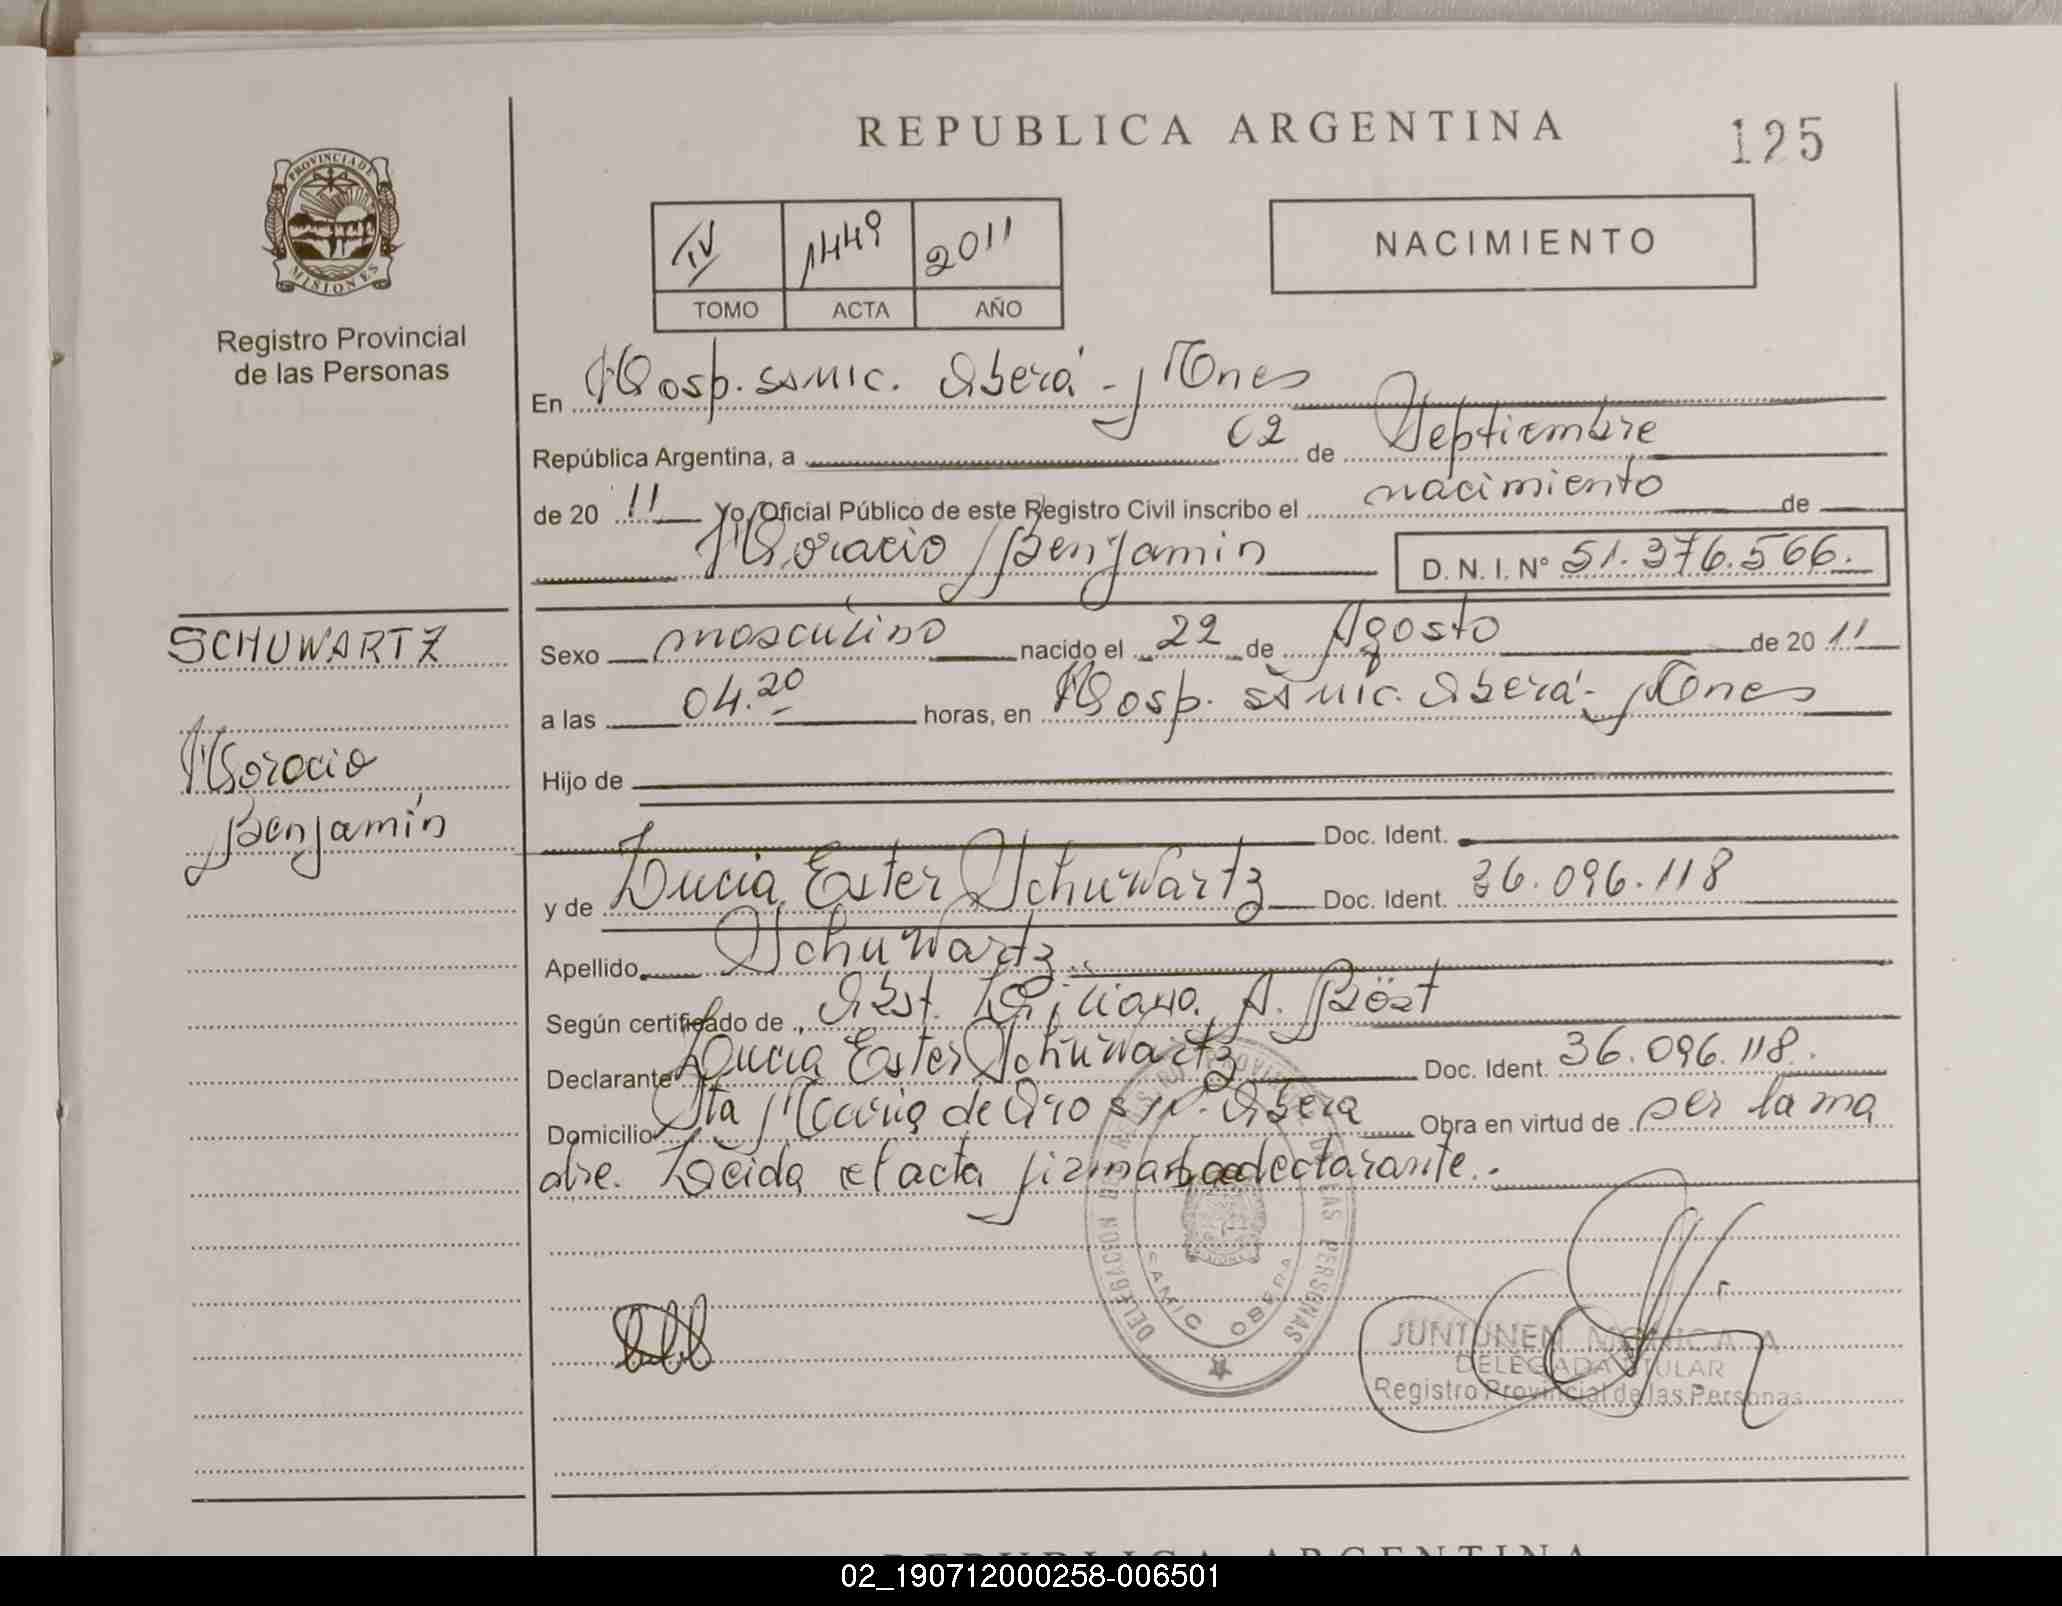 REPUBLICA ARGENTINA
125
PROVINCIA DE
MISIONES
Registro Provincial
de las Personas
IV 1449 2011
TOMO ACTA AÑO
NACIMIENTO
En Hosp. SAMIC. Oberá - Mnes
República Argentina, a 02 de Septiembre
de 20 11 Yo, Oficial Público de este Registro Civil inscribo el nacimiento de
Horacio Benjamin D. N. I. Nº 51.376.566.
SCHUWARTZ
Horacio
Benjamín
Sexo masculino nacido el 22 de Agosto de 20 11
a las 04.20 horas, en Hosp. SAMIC. Oberá - Mnes
Hijo de
Doc. Ident.
y de Lucia Ester Schuwartz Doc. Ident. 36.096.118
Apellido Schuwartz
Según certificado de Obst. Liliana A. Böst
Declarante Lucia Ester Schuwartz Doc. Ident. 36.096.118.
Domicilio Sta Maria de Oro S/N. Oberá Obra en virtud de ser la ma
dre. Leida el acta firman declarante.
DELEGACION
DE LAS PERSONAS
SAMIC OBERA
JUNTUNEN MONICA A
DELEGADA TITULAR
Registro Provincial de las Personas
REPUBLICA ARGENTINA
02_190712000258-006501